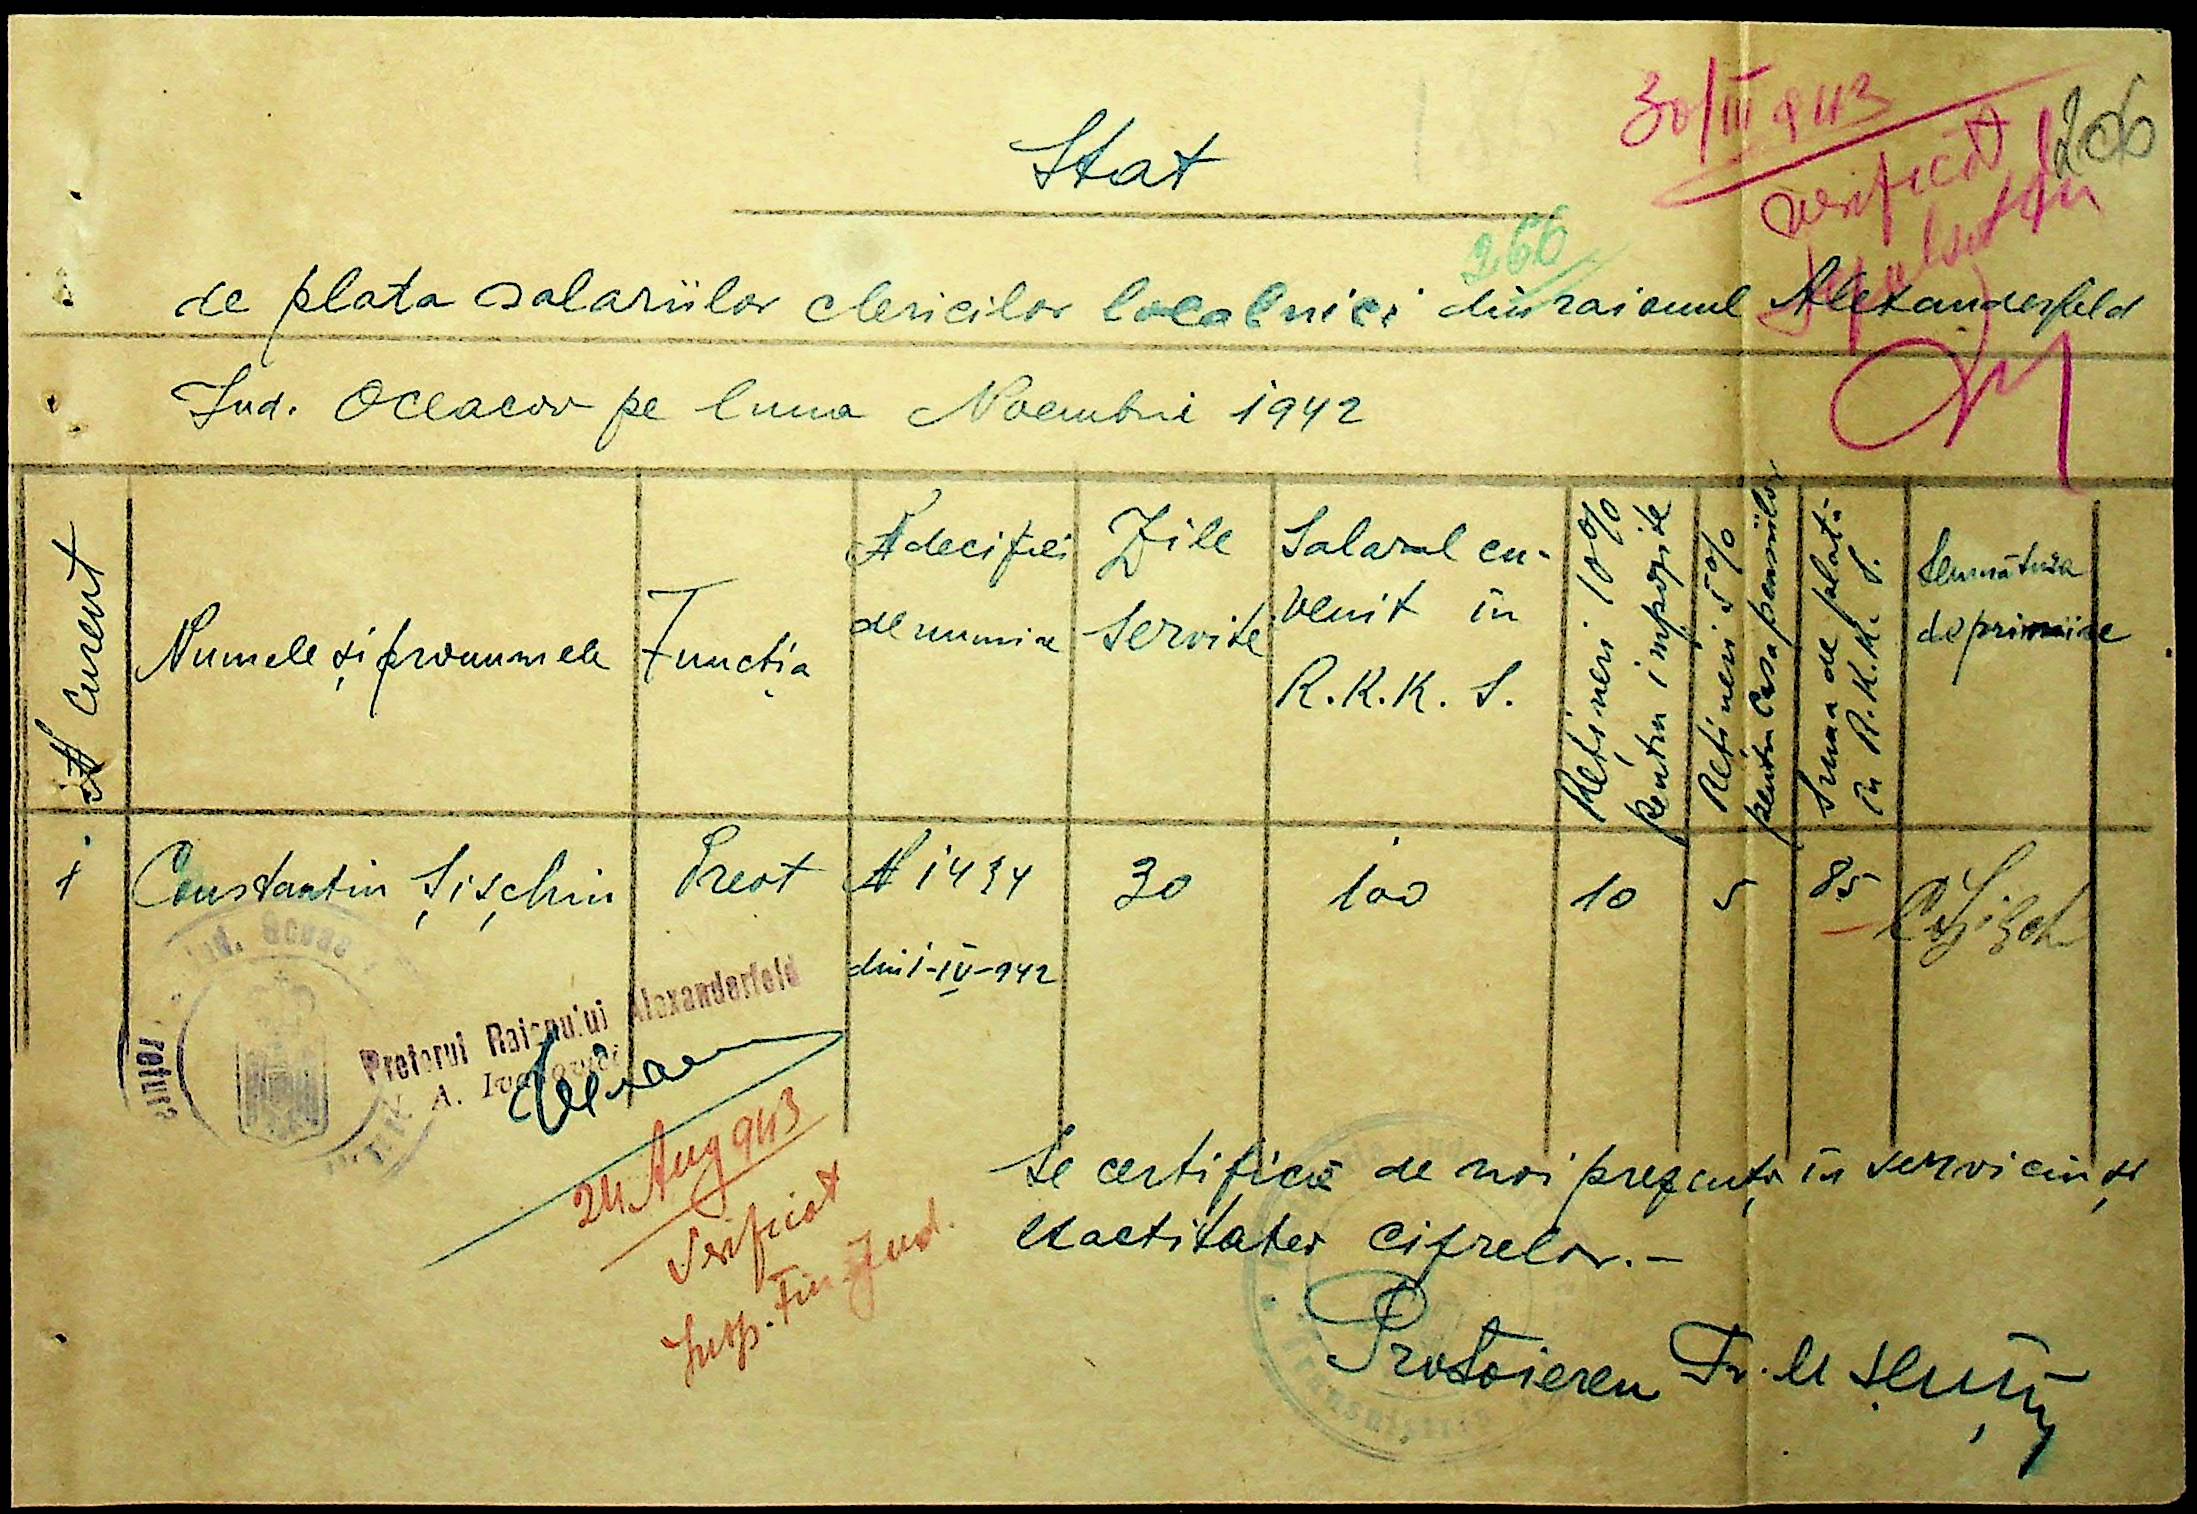 30/III 943
verificat
206
Stat
266
de plata salariilor clericilor localnici din raionul Alexanderfeld
Jud. Oceacov pe luna Noembrie 1942
№ curent
Numele și pronumele
Funcția
№ deciziei
de numire
Zile
servite
Salarul cu-
venit în
R.K.K. S.
Rețineri 10%
pentru impozite
Rețineri 5%
pentru Casa pensiilor
Suma de plată
în R.K.K. S.
Semnătura
de primire
1
Constantin Șișchin
Preot
№ 1434
din 1-IV-942
30
100
10
5
85
Jud. Oceac
Pretorul Raionului Alexanderfeld
A. Ivanovici
24 Aug 943
Verificat
Insp. Fin Jud.
Se certifică de noi prezența în serviciu și
exactitatea cifrelor.-
Protoiereu
Transnistria